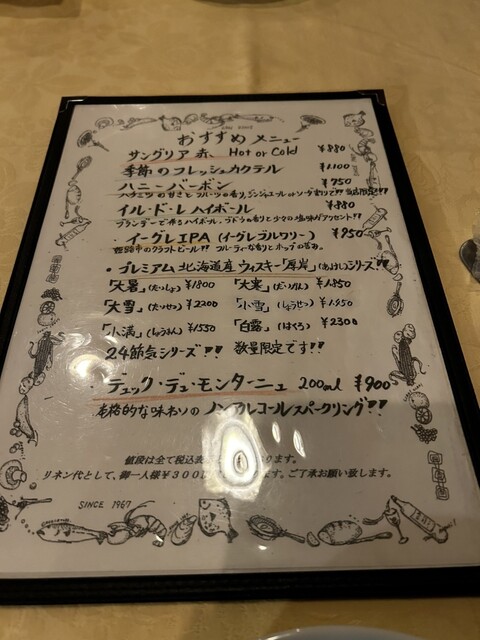 おすすめメニュー
サングリア 赤 Hot or Cold ¥880
季節のフレッシュカクテル ¥1100
ハニーバーボン ¥750
ハチミツの甘さとフルーツの香り、ジンジエール or ソーダ割りで!!
イル・ド・レ ハイボール ¥880
ブランデーで作るハイボール、ブドウの香りと少々の塩味がアクセント!!
・イーグレIPA (イーグレブルワリー) ¥950
姫路市のクラフトビール!! フルーティな香りとホップの苦み。
・プレミアム北海道産ウィスキー「厚岸」(あっけし)シリーズ!!
「大暑」(たいしょ) ¥1800 「大寒」(だいかん) ¥1850
「大雪」(たいせつ) ¥2200 「小雪」(しょうせつ)
「小満」(しょうまん) ¥1550 「白露」(はくろ) ¥2300
24節気シリーズ!! 数量限定です!!
・デュック・デュ・モンターニュ 200ml ¥900
本格的な味わいの ノンアルコールスパークリング!!
値段は全て税込表 ります。
リネン代として、御一人様¥300 ます。ご了承お願い致します。
SINCE 1967